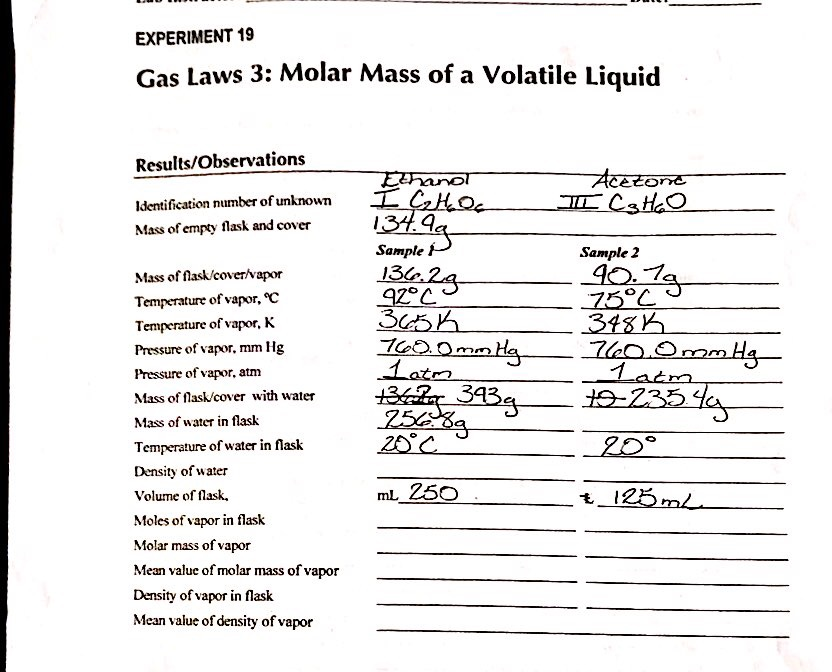 EXPERIMENT 19
Gas Laws 3: Molar Mass of a Volatile Liquid
Results/Observations
Ethanol Acetone
Identification number of unknown I C2H6O6 III C3H6O
Mass of empty flask and cover 134.9g
Sample 1 Sample 2
Mass of flask/cover/vapor 136.2g 90.7g
Temperature of vapor, °C 92°C 75°C
Temperature of vapor, K 365K 348K
Pressure of vapor, mm Hg 760.0mmHg 760.0mmHg
Pressure of vapor, atm 1atm 1atm
Mass of flask/cover with water 393g 235.4g
Mass of water in flask 256.8g
Temperature of water in flask 20°C 20°
Density of water
Volume of flask, mL 250 125mL
Moles of vapor in flask
Molar mass of vapor
Mean value of molar mass of vapor
Density of vapor in flask
Mean value of density of vapor